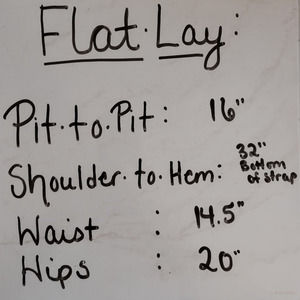 Flat·Lay:
Pit·to·Pit: 16"
Shoulder·to·Hem: 32"
Bottom
of strap
Waist : 14.5"
Hips : 20"